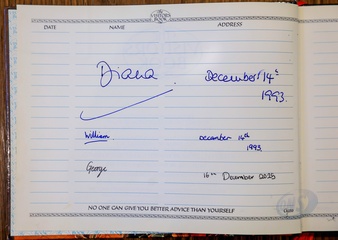 THE VISITORS BOOK
DATE NAME ADDRESS
Diana December 14th
1993.
William December 14th
1993
George 16th December 2025
NO ONE CAN GIVE YOU BETTER ADVICE THAN YOURSELF